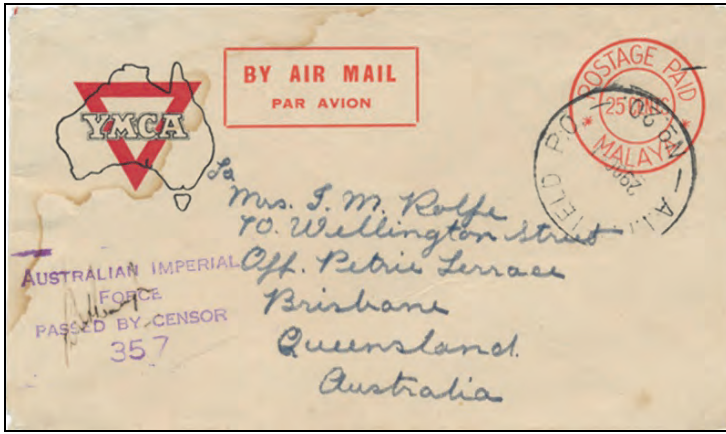 BY AIR MAIL
PAR AVION
YMCA
POSTAGE PAID
25 CENTS
MALAYA
FIELD P.O. No. 20 — A.I.F.
To
Mrs. I. M. Rolfe
70. Wellington Street
Off. Petrie Terrace
Brisbane
Queensland.
Australia
AUSTRALIAN IMPERIAL
FORCE
PASSED BY CENSOR
357